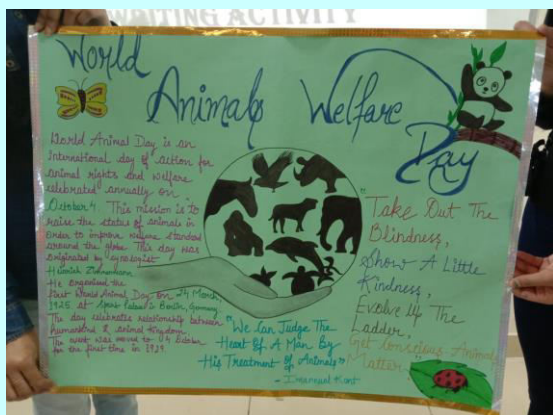 WRITING ACTIVITY
World
Animals Welfare
Day
World Animal Day is an
International day of action for
animal rights and welfare
celebrated annually on
October 4. This mission is "to
raise the status of animals in
order to improve welfare standard
around the globe. This day was
originated by cynologist
Heinrich Zimmermann
He organized the
first World Animal Day on 24 March,
1925 at Sports Palace in Berlin, Germany.
The day celebrate relationship between
humankind & animal kingdom.
The event was moved to 04 October
for the first time in 1929
"We Can Judge The
Heart Of A Man By
His Treatment Of Animals"
- Immanuel Kant
"Take Out The
Blindness,
Show A Little
Kindness,
Evolve Up The
Ladder,
Get Conscious Animals
Matter